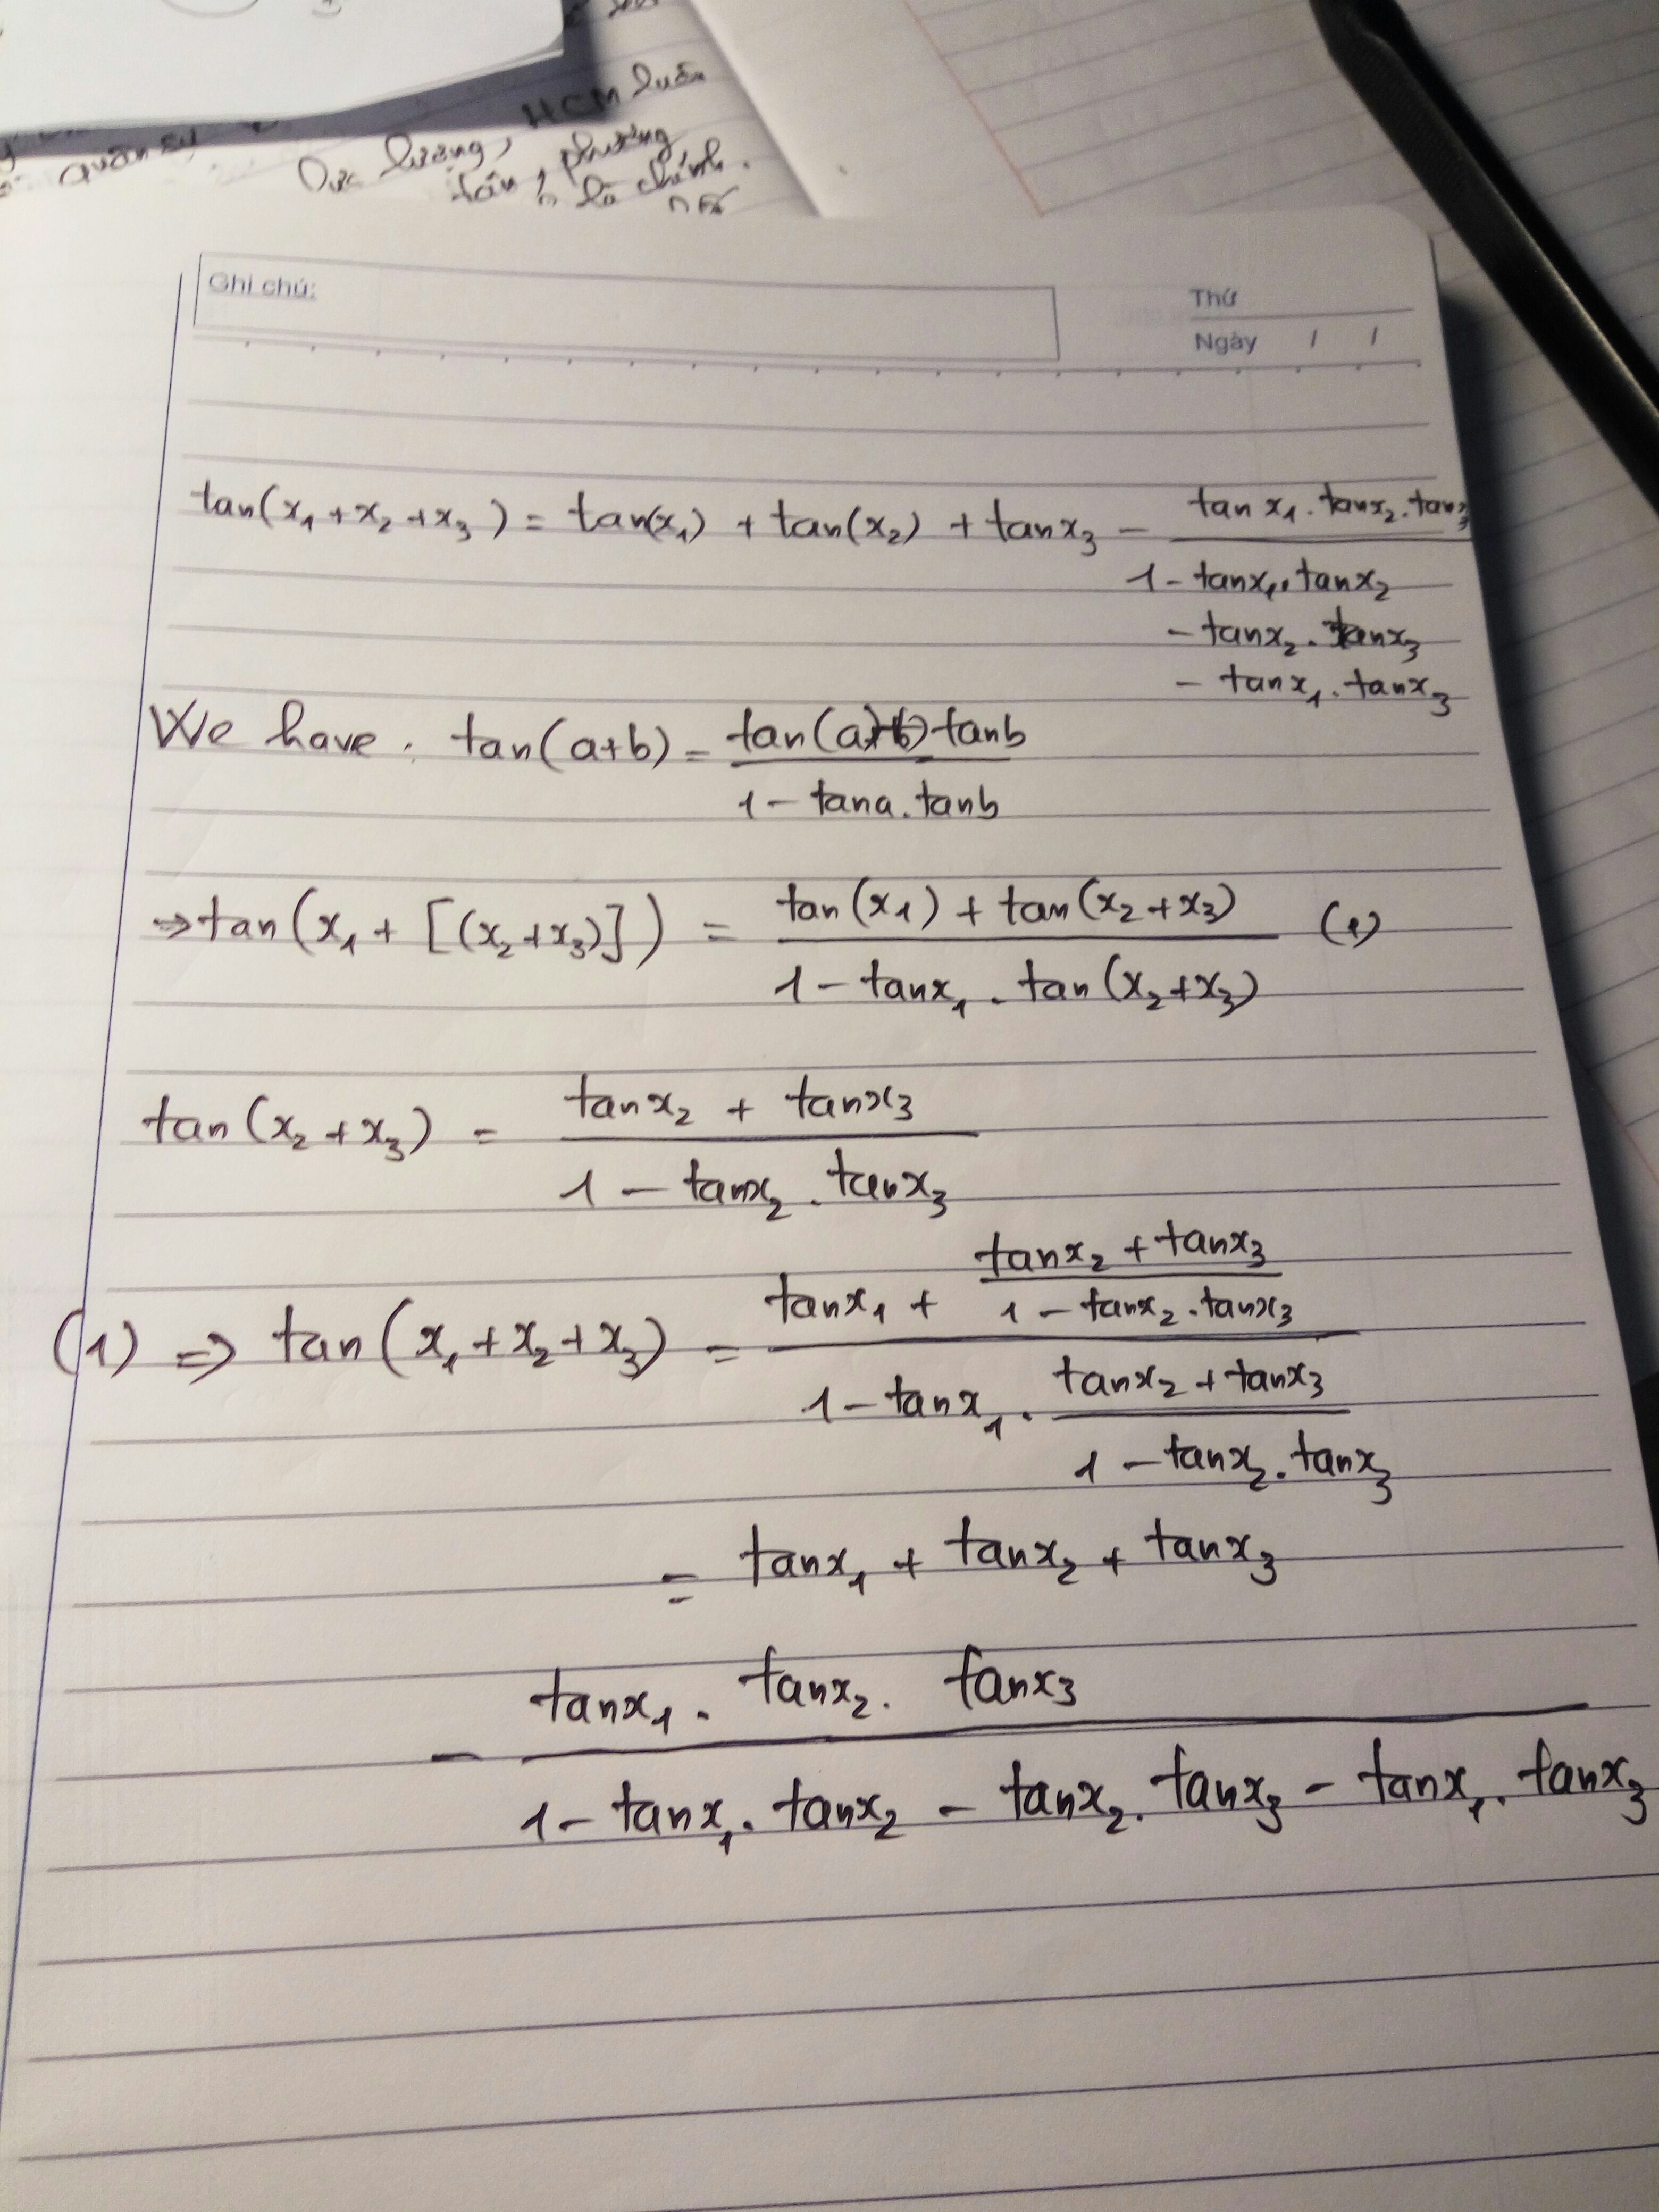 HCM luôn
quân sự
lực lượng, phương
là chính.
Ghi chú:
Thứ
Ngày / /
tan(x₁+x₂+x₃) = tan(x₁) + tan(x₂) + tanx₃ − tan x₁ . tanx₂ . tanx₃
1 − tanx₁ . tanx₂
− tanx₂ . tanx₃
− tanx₁ . tanx₃
We have : tan(a+b) = tan(a)+tanb
1 − tana . tanb
⇒ tan(x₁ + [(x₂+x₃)]) = tan(x₁) + tan(x₂+x₃) (1)
1 − tanx₁ . tan(x₂+x₃)
tan(x₂+x₃) = tanx₂ + tanx₃
1 − tanx₂ . tanx₃
tanx₂ + tanx₃
tanx₁ + 1 − tanx₂ . tanx₃
(1) ⇒ tan(x₁+x₂+x₃) =
1 − tanx₁ . tanx₂ + tanx₃
1 − tanx₂ . tanx₃
= tanx₁ + tanx₂ + tanx₃
− tanx₁ . tanx₂ . tanx₃
1 − tanx₁ . tanx₂ − tanx₂ . tanx₃ − tanx₁ . tanx₃